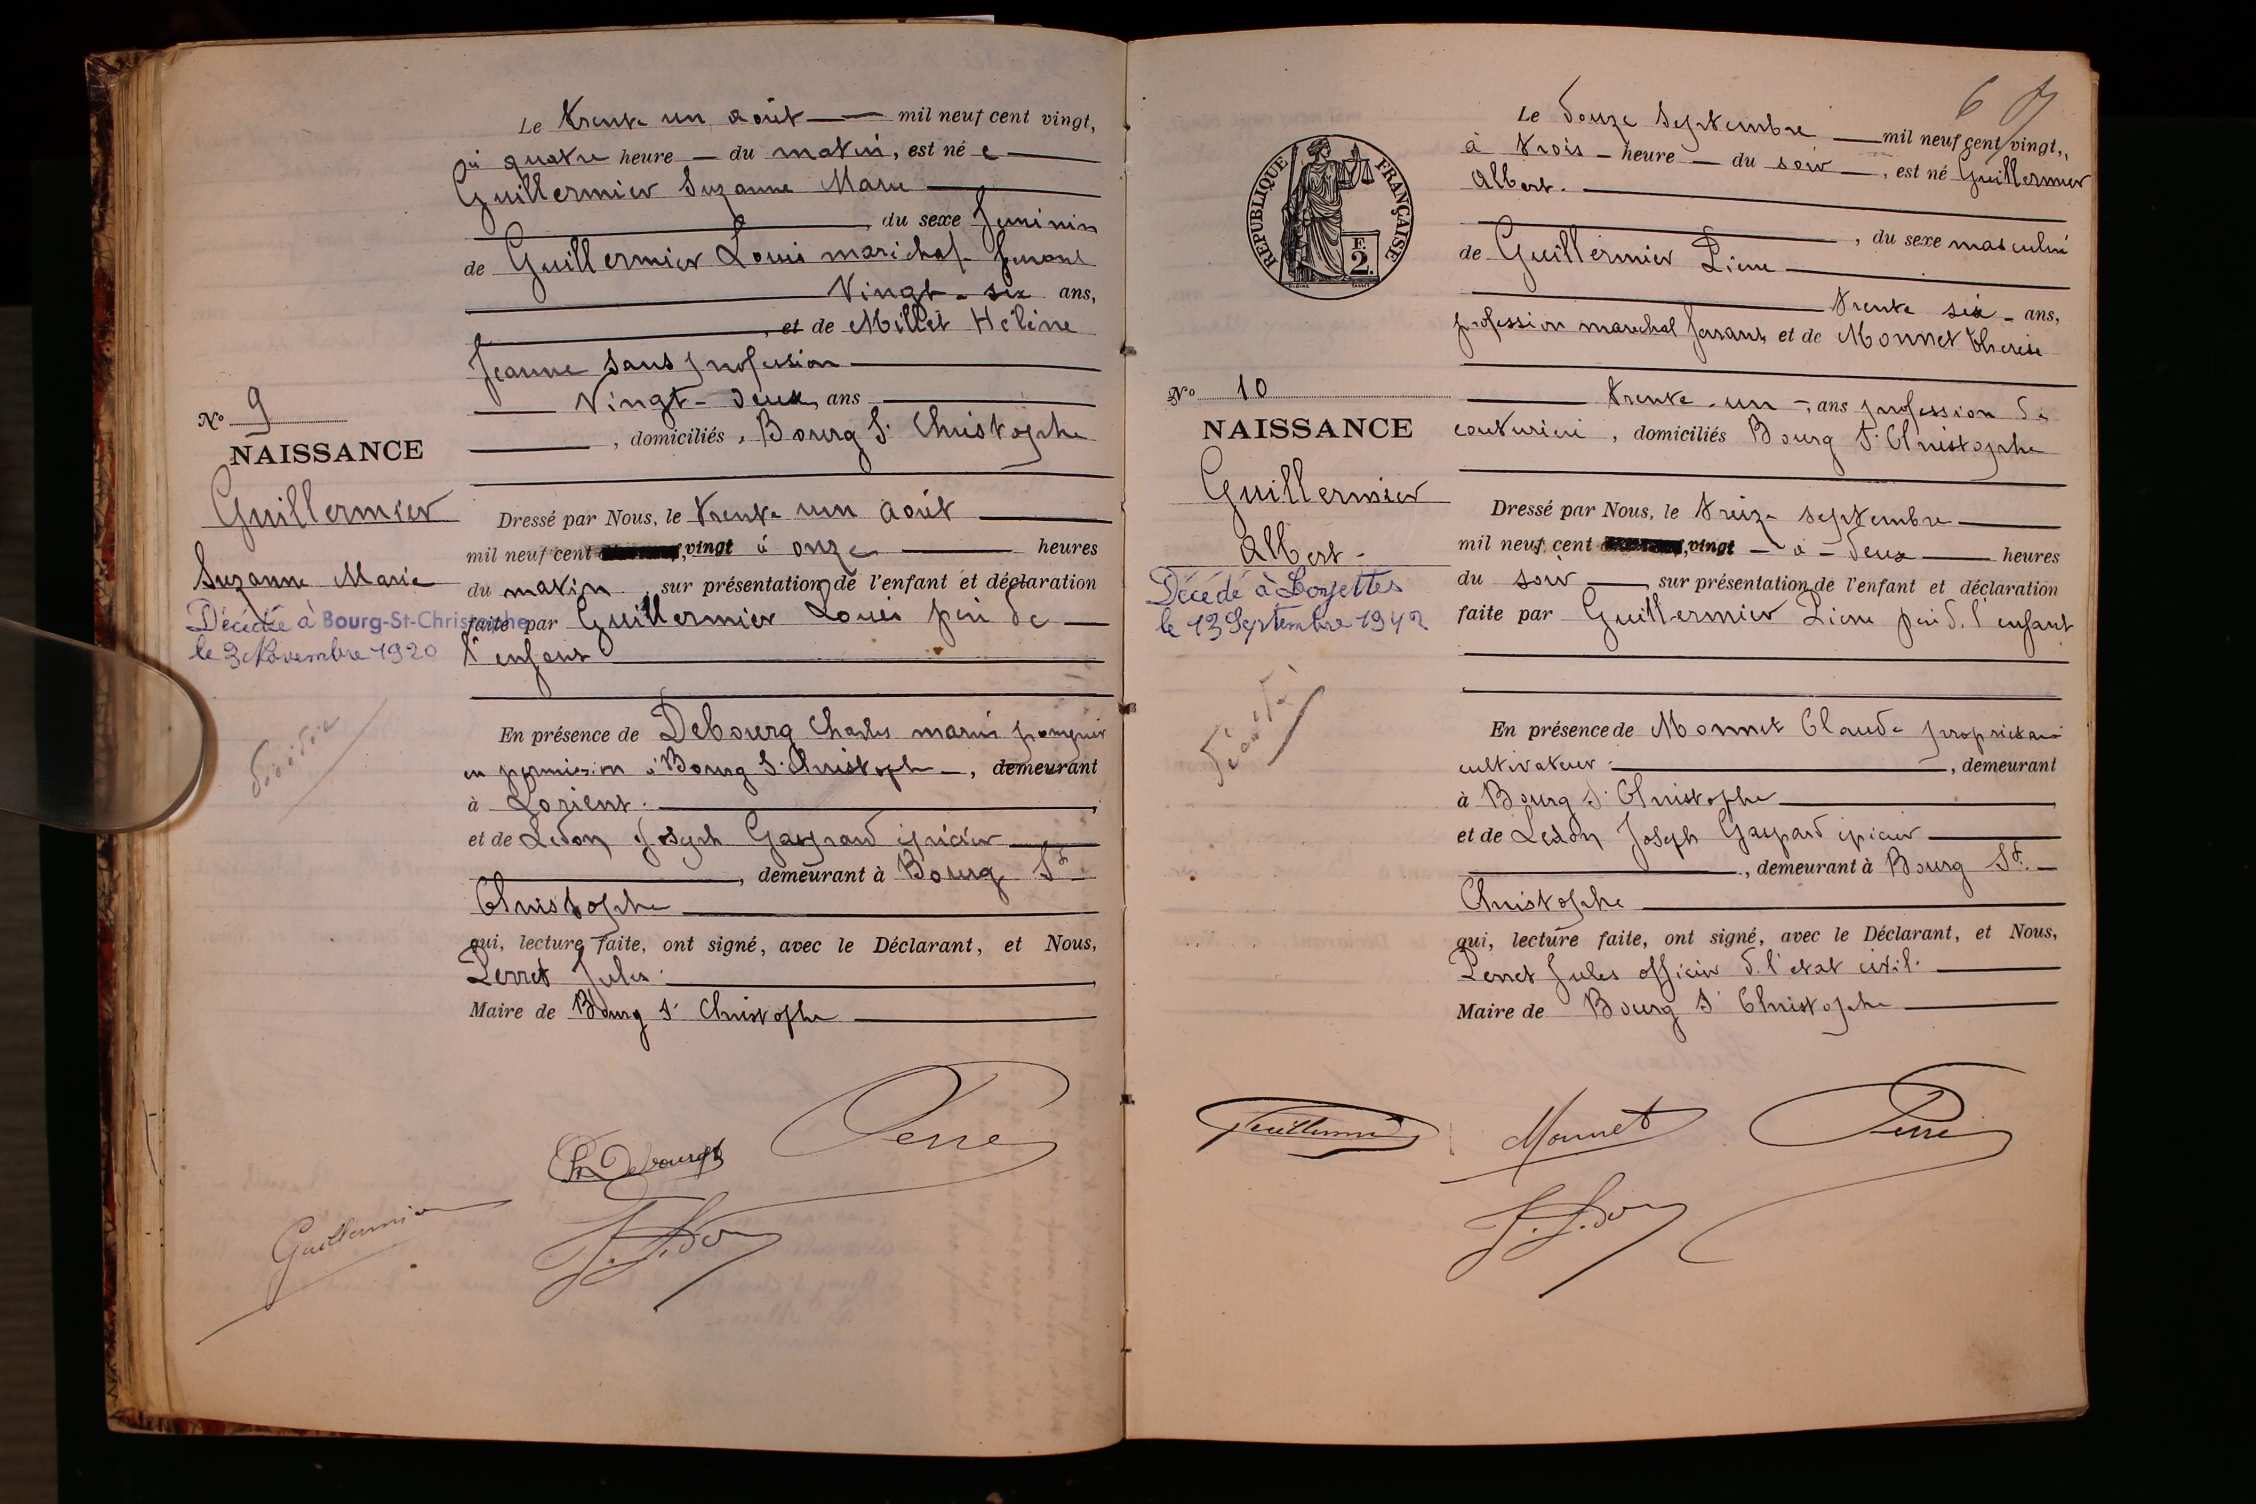 Le trente un août mil neuf cent vingt,
à quatre heure du matin, est né e
Guillermier Suzanne Marie
, du sexe feminin
de Guillermier Louis marichal ferrant
Vingt-six ans,
, et de Millet Hélène
Jeanne sans profession
Vingt-deux, ans
, domiciliés, Bourg St Christophe
No 9
NAISSANCE
Guillermier
Suzanne Marie
Décédée à Bourg-St-Christophe
le 3 Novembre 1920
décédée
Dressé par Nous, le trente un août
mil neuf cent vingt à onze heures
du matin, sur présentation de l'enfant et déclaration
faite par Guillermier Louis père de
l'enfant
En présence de Debourg Charles marin pompier
en permission à Bourg St Christophe, demeurant
à Lorient.
et de Ledon Joseph Gaspard épicier
, demeurant à Bourg St
Christophe
qui, lecture faite, ont signé, avec le Déclarant, et Nous,
Perret Jules.
Maire de Bourg St Christophe
Ch Debourg
Perret
Guillermier
J. Ledon
6
Le douze Septembre mil neuf cent vingt,
à trois heure du soir, est né Guillermier
Albert.
, du sexe masculin
de Guillermier Pierre
trente six ans,
profession marechal ferrant, et de Monnet Thérèse
trente-un, ans profession de
couturière, domiciliés Bourg St Christophe
REPUBLIQUE FRANÇAISE
F.
2.
No 10
NAISSANCE
Guillermier
Albert
Décédé à Loyettes
le 13 Septembre 1942
Dressé par Nous, le treize septembre
mil neuf cent vingt à deux heures
du soir, sur présentation de l'enfant et déclaration
faite par Guillermier Pierre père de l'enfant
En présence de Monnet Claude propriétaire
cultivateur, demeurant
à Bourg St Christophe
et de Ledon Joseph Gaspard épicier
, demeurant à Bourg St.
Christophe
qui, lecture faite, ont signé, avec le Déclarant, et Nous,
Perret Jules officier de l'etat civil.
Maire de Bourg St Christophe
Guillermier
Monnet
Perret
J. Ledon